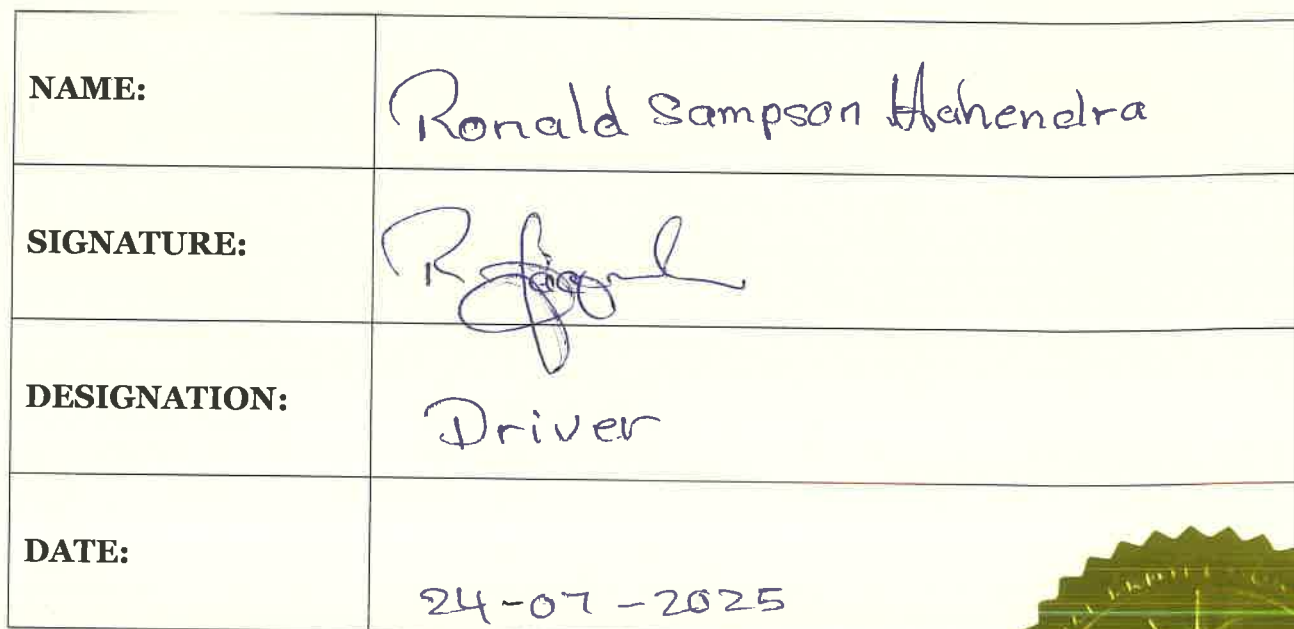 NAME: Ronald Sampson Hahendra
SIGNATURE:
DESIGNATION: Driver
DATE: 24-07-2025